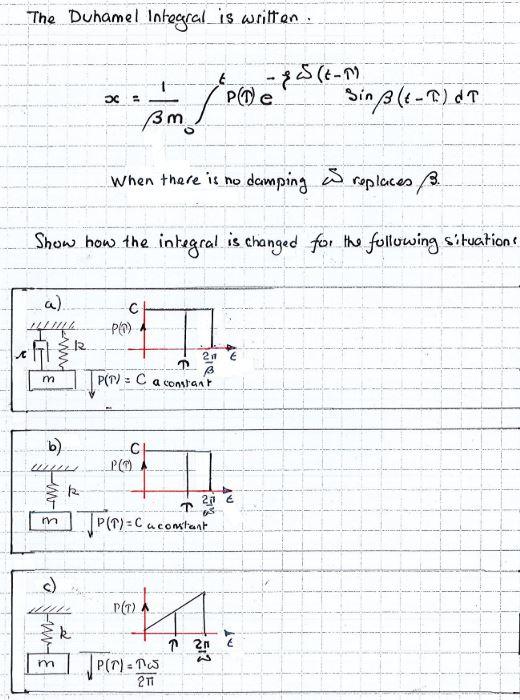 The Duhamel Integral is written.
x = 1/βm ∫₀ᵗ P(τ) e^(-ξω̃(t-τ)) Sin β(t-τ) dτ
When there is no damping ω̃ replaces β.
Show how the integral is changed for the following situations
a)
C
P(τ)
k
τ
2π/β
t
m
P(τ) = C a constant
b)
C
P(τ)
k
τ
2π/ω̃
t
m
P(τ) = C a constant
c)
P(τ)
k
τ
2π/ω̃
t
m
P(τ) = τω̃/2π